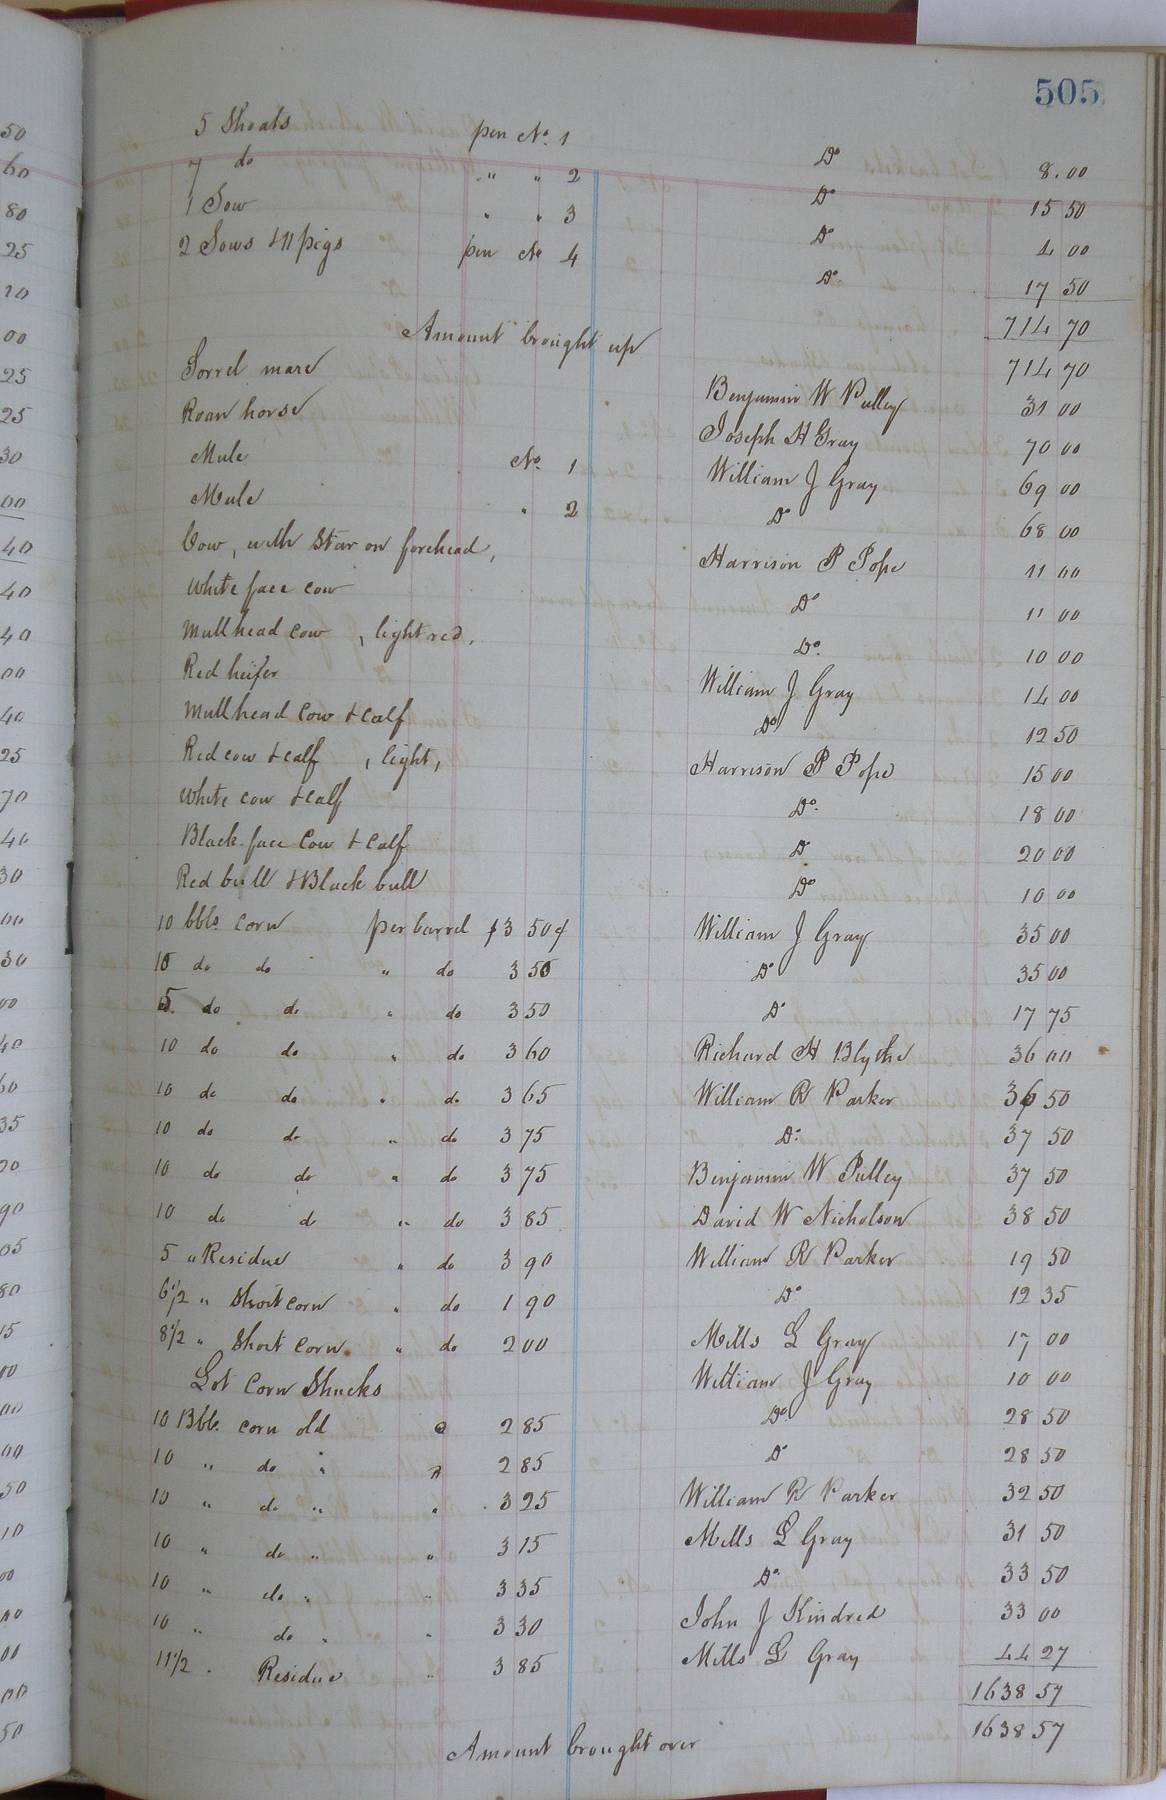 505
50
5 Shoats pen No. 1 Do 8.00
60
7 do " " 2 Do 15 50
80
1 Sow " " 3 Do 4 00
25
2 Sows & 11 pigs pen No 4 Do. 17 50
10
714 70
00
Amount brought up 714 70
25
Sorrel mare Benjamin W Pulley 31 00
25
Roan horse Joseph H Gray 70 00
30
Mule No. 1 William J Gray 69 00
00
Mule " 2 Do 68 00
40
Cow, with Star on forehead, Harrison P Pope 11 00
40
White face cow Do 11 00
40
Mullhead cow, light red. Do. 10 00
00
Red heifer William J Gray 14 00
40
Mullhead Cow & calf Do 12 50
25
Red cow & calf, light, Harrison P Pope 15 00
70
White cow & calf Do. 18 00
40
Black-face Cow & Calf D 20 00
30
Red bull & Black bull Do 10 00
00
10 bbls. corn per barrel $3 50 ¢ William J Gray 35 00
30
10 do do " do 3 50 Do 35 00
00
5. do do " do 3 50 Do 17 75
40
10 do do " do 3 60 Richard H Blythe 36 00
60
10 do do " do 3 65 William R Parker 36 50
35
10 do do " do 3 75 Do. 37 50
20
10 do do " do 3 75 Benjamin W Pulley 37 50
90
10 do do " do 3 85 David W Nicholson 38 50
05
5 " Residue " do 3 90 William R Parker 19 50
80
6 1/2 " Short corn " do 1 90 Do 12 35
15
8 1/2 " Short Corn " do 2 00 Mills L Gray 17 00
00
Lot Corn Shucks William J Gray 10 00
00
10 Bbls. corn old @ 2 85 Do. 28 50
00
10 " do " " 2 85 Do 28 50
50
10 " do " " 3 25 William R Parker 32 50
10
10 " do " " 3 15 Mills L Gray 31 50
00
10 " do " " 3 35 Do. 33 50
10 " do " " 3 30 John J Kindred 33 00
00
11 1/2 " Residue " 3 85 Mills L Gray 44 27
00
1638 57
50
Amount brought over 1638 57